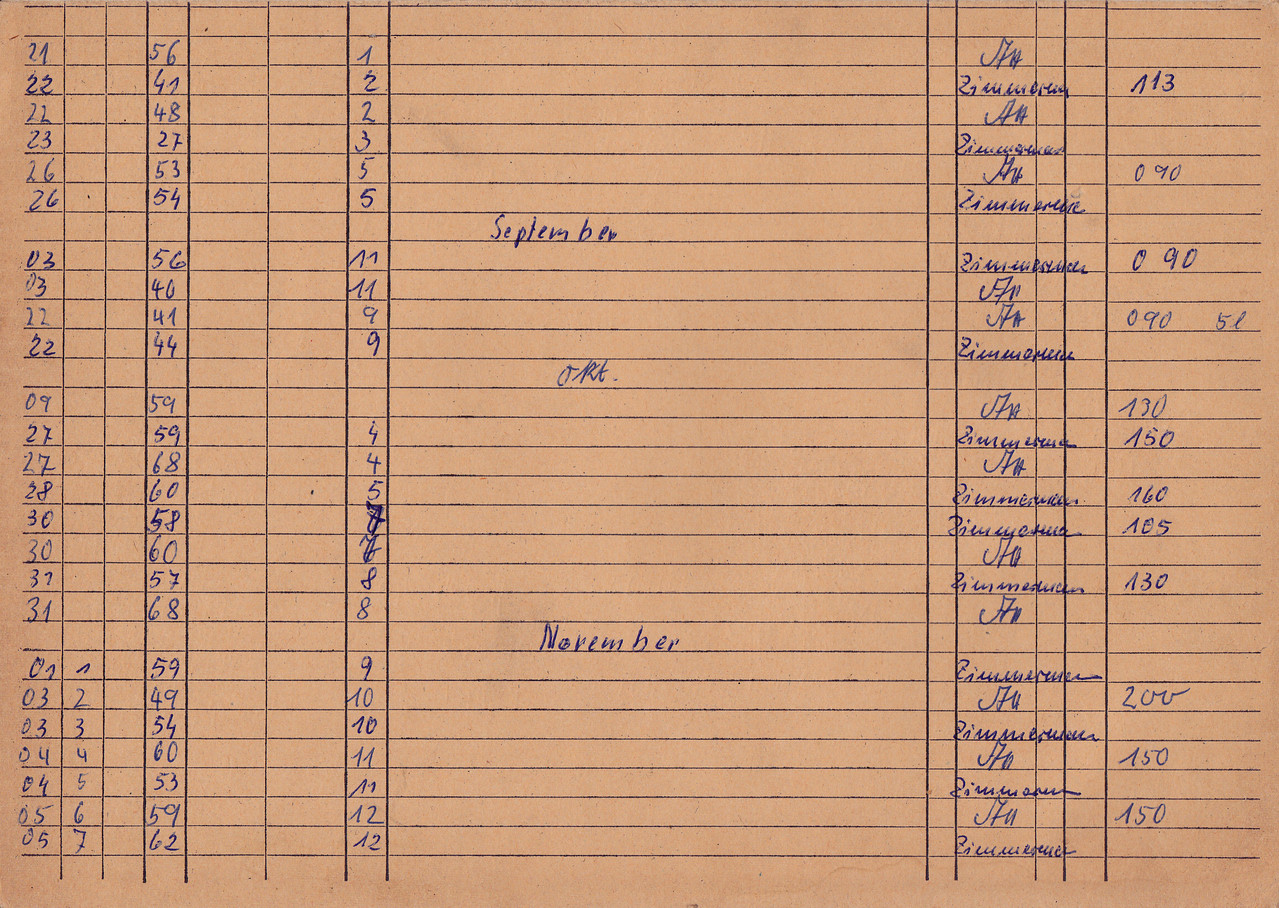 21 56 1
22 41 2 Zimmerm 113
22 48 2
23 27 3 Zimmerman
26 53 5 090
26 54 5 Zimmerman
September
03 56 11 Zimmerman 090
03 40 11
22 41 9 090 5l
22 44 9 Zimmerman
Okt.
09 59 130
27 59 4 Zimmerman 150
27 68 4
28 60 5 Zimmerman 160
30 58 7 Zimmerman 105
30 60 7
31 57 8 Zimmerman 130
31 68 8
November
01 1 59 9 Zimmerman
03 2 49 10 200
03 3 54 10 Zimmerman
04 4 60 11 150
04 5 53 11 Zimmerman
05 6 59 12 150
05 7 62 12 Zimmerman